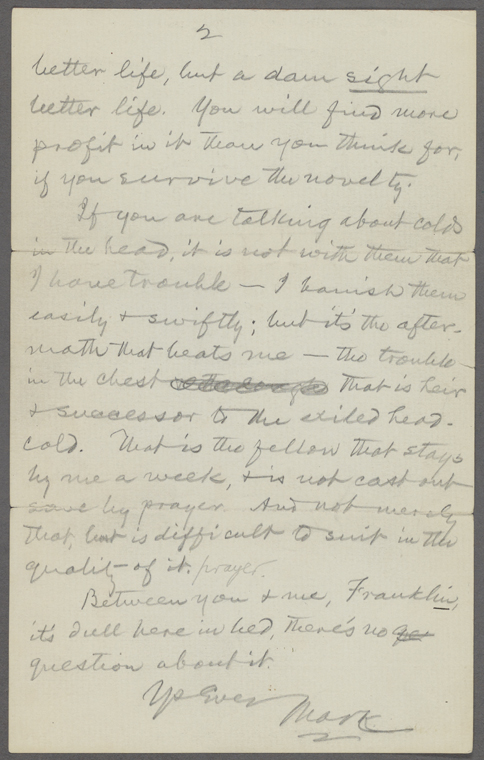 2
better life, but a dam sight
better life. You will find more
profit in it than you think for,
if you survive the novelty.
If you are talking about colds
in the head, it is not with them that
I have trouble — I banish them
easily & swiftly; but it's the after-
math that beats me — the trouble
in the chest that is heir
& successor to the exiled head-
cold. That is the fellow that stays
by me a week, & is not cast out
save by prayer. And not merely
that, but is difficult to suit in the
quality of it. prayer.
Between you & me, Franklin,
it's dull here in bed, there's no qe
question about it.
Ys Ever
Mark